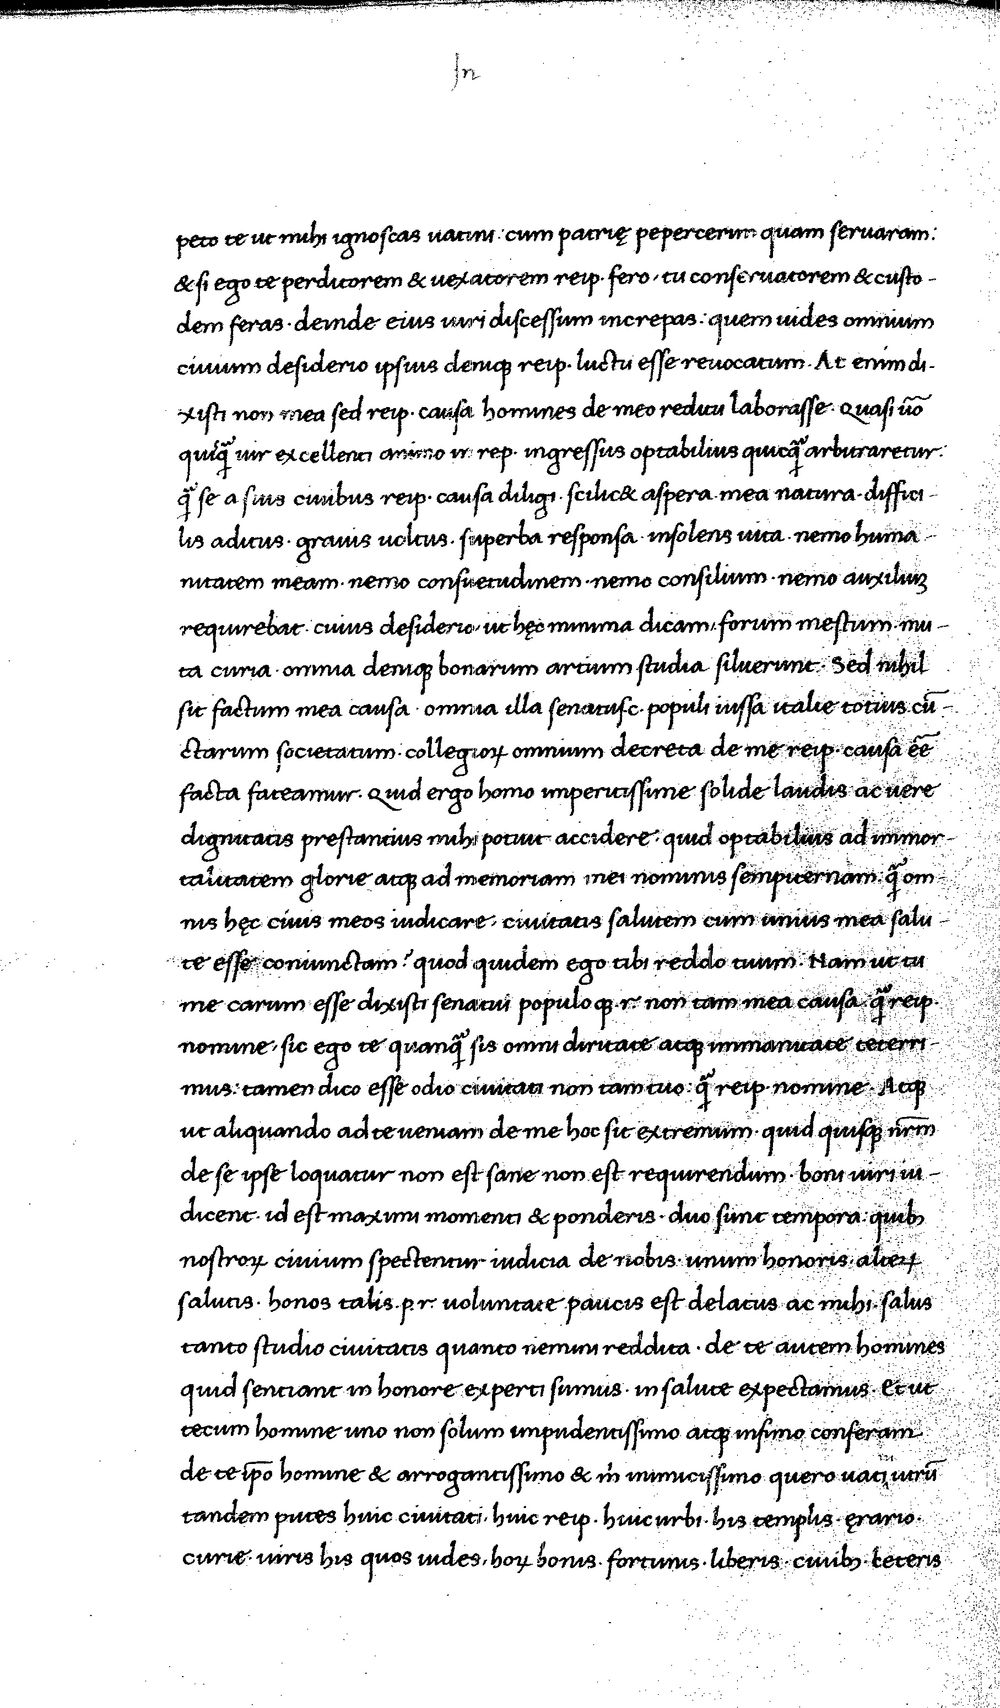 In
peto te ut mihi ignoscas uatini: cum patrię pepercerim quam seruaram:
& si ego te perditorem & uexatorem reip· fero, tu conseruatorem & custo-
dem feras· deinde eius uiri discessum increpas: quem uides omnium
ciuium desiderio ipsius deniqꝫ reip· luctu esse reuocatum· At enim di-
xisti non mea sed reip· causa homines de meo reditu laborasse· Quasi ũo
quiq̃ uir excellenti animo in rep· ingressus optabilius quicq̃ arbitraretur:
q̃ se a suis ciuibus reip· causa diligi· scilic& aspera mea natura· diffici-
lis aditus· grauis uoltus· superba responsa· insolens uita· nemo huma-
nitatem meam· nemo consuetudinem· nemo consilium· nemo auxiliuꝫ
requirebat· cuius desiderio, ut hęc minima dicam, forum mestum· mu-
ta curia· omnia deniqꝫ bonarum artium studia siluerunt· Sed nihil
sit factum mea causa· omnia illa senatusc· populi iussa italie totius cũ-
ctarum societatum· collegioꝝ omnium decreta de me reip· causa eẽ
facta fateamur· Quid ergo homo imperitissime solide laudis ac uere
dignitatis prestantius mihi potuit accidere· quid optabilius ad immor-
talitatem glorie atqꝫ ad memoriam mei nominis sempiternam· q̃ om-
nis hęc ciuis meos iudicare, ciuitatis salutem cum unius mea salu-
te esse coniunctam? quod quidem ego tibi reddo tuum· Nam ut tu
me carum esse dixisti senatui populoqꝫ· r· non tam mea causa· q̃ reip·
nomine, sic ego te quanq̃ sis omni diritate atqꝫ immanitate teterri-
mus: tamen dico esse odio ciuitati non tam tuo: q̃ reip· nomine· Atqꝫ
ut aliquando ad te ueniam de me hoc sit extremum· quid quisqꝫ nr̃m
de se ipse loquatur non est sane non est requirendum· boni uiri iu-
dicent· id est maximi momenti & ponderis· duo sunt tempora: quibꝫ
nostroꝝ ciuium spectentur iudicia de nobis· unum honoris· alteꝝ
salutis· honos talis· p· r· uoluntate paucis est delatus ac mihi· salus
tanto studio ciuitatis quanto nemini reddita· de te autem homines
quid sentiant in honore experti sumus· in salute expectamus· Et ut
tecum homine uno non solum impudentissimo atqꝫ infimo conferam·
de te ip̃o homine & arrogantissimo & m̃ inimicissimo quero uati, utrũ
tandem putes huic ciuitati· huic reip· huic urbi· his templis· ęrario·
curie· uiris his quos uides, hoꝝ bonis· fortunis· liberis· ciuibꝫ ceteris